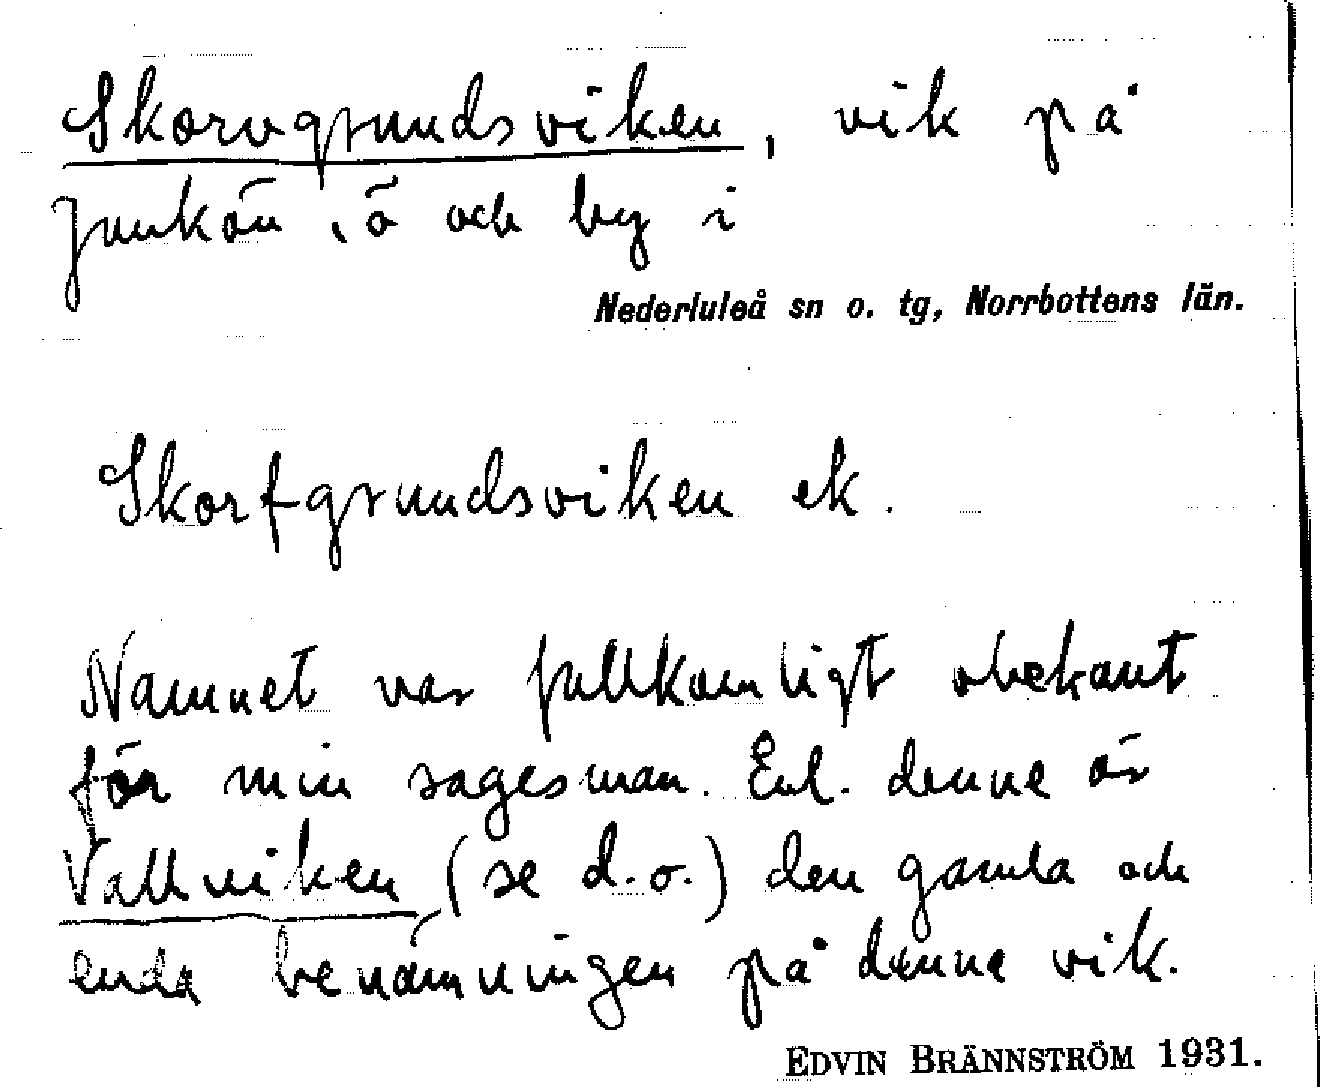 Skorvgrundsviken, vik på
Junkön, ö och by i
Nederluleå sn o. tg, Norrbottens län.
Skorfgrundsviken ek.
Namnet var fullkomligt obekant
för min sagesman. Enl. denne är
Vallviken (se d.o.) den gamla och
enda benämningen på denne vik.
EDVIN BRÄNNSTRÖM 1931.